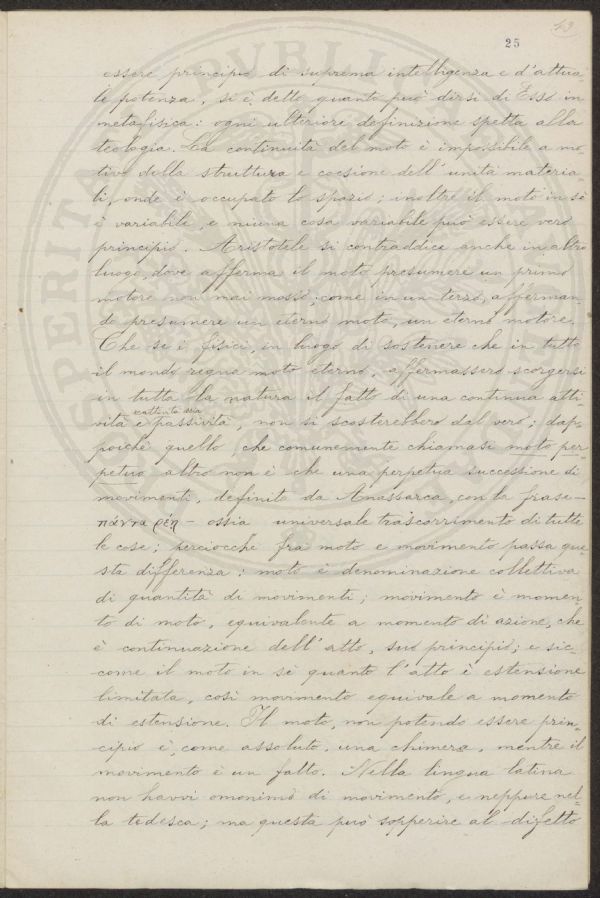 43
25
essere principio di suprema intelligenza e d'attua-
le potenza, si è detto quanto può dirsi di Esso in
metafisica: ogni ulteriore definizione spetta alla
teologia. La continuità del moto è impossibile a mo-
tivo della struttura e coesione dell'unità materia-
li, onde è occupato lo spazio; inoltre il moto in sè
è variabile, e niuna cosa variabile può essere vero
principio. Aristotele si contraddice anche in altro
luogo, dove afferma il moto presumere un primo
motore non mai mosso; come in un terzo, afferman-
do presumere un eterno moto, un eterno motore.
Che se i fisici, in luogo di sostenere che in tutto
il mondo regna moto eterno, affermassero scorgersi
in tutta la natura il fatto di una continua atti-
vità e passività, non si scosterebbero dal vero; dap-
poichè quello che comunemente chiamasi moto per-
petuo altro non è che una perpetua successione di
movimenti, definito da Anassarca, con la frase -
πάντα ρέη - ossia universale trascorrimento di tutte
le cose; perciocchè fra moto e movimento passa que
sta differenza: moto è denominazione collettiva
di quantità di movimenti; movimento è momen
to di moto, equivalente a momento di azione, che
è continuazione dell'atto, suo principio; e sic-
come il moto in sè quanto l'atto è estensione
limitata, così movimento equivale a momento
di estensione. Il moto, non potendo essere prin-
cipio è, come assoluto, una chimera, mentre il
movimento è un fatto. Nella lingua latina
non havvi omonimo di movimento, e neppure nel-
la tedesca; ma questa può sopperire al difetto